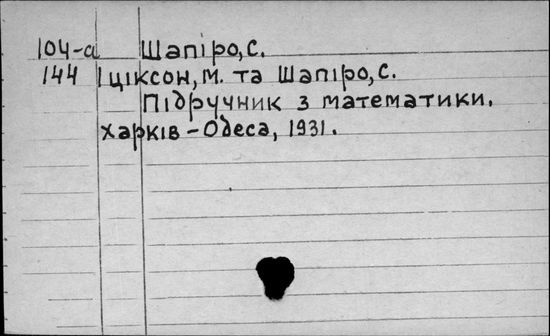 104-а Шапіро, С.
144 Іціксон, М. та Шапіро, С.
Підручник з математики.
Харків – Одеса, 1931.